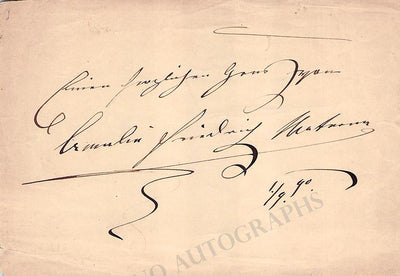 Einen herzlichen Gruß von
Amalie Friedrich Materna
1/9. 90.
TAMINO AUTOGRAPHS